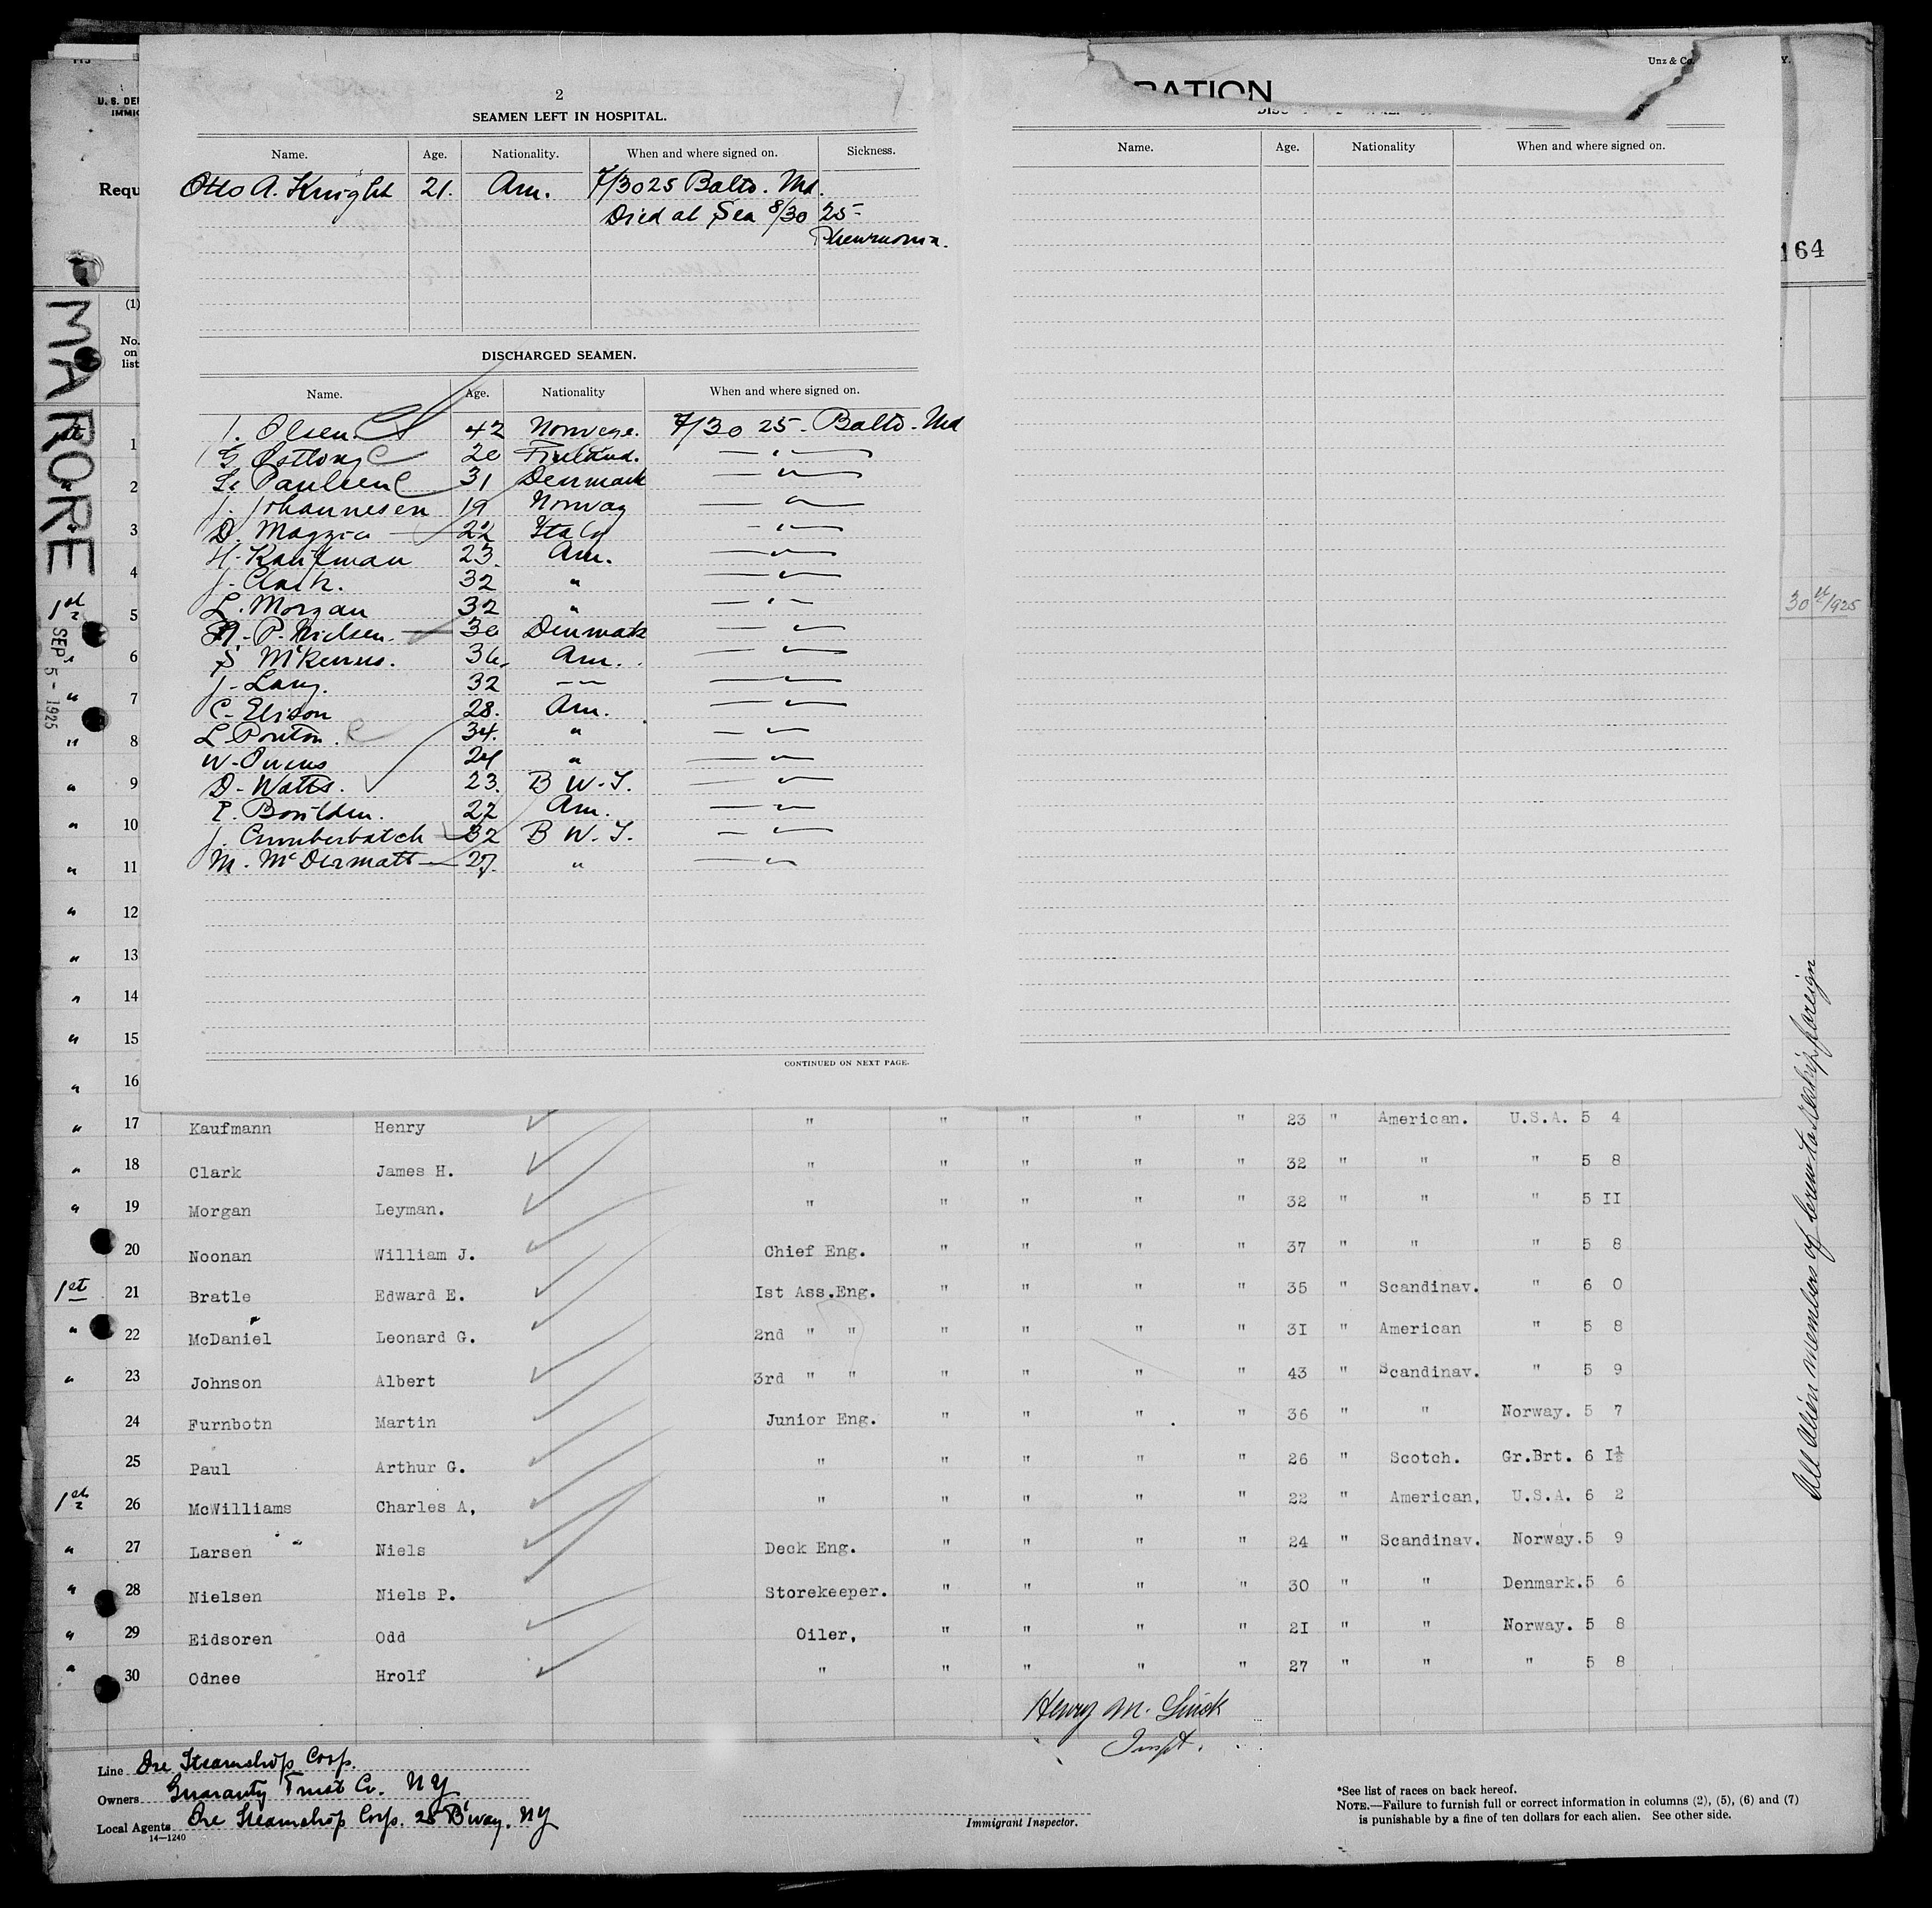 U. S. DE
IMMIG
Requ
MARORE
SEP 5 - 1925
2
SEAMEN LEFT IN HOSPITAL.
Name. Age. Nationality. When and where signed on. Sickness.
Otto A. Knight 21. Am. 7/30 25 Balto. Md.
Died at Sea 8/30 25-
Pneumonia.
DISCHARGED SEAMEN.
Name. Age. Nationality When and where signed on.
Olsen. 42 Norvege. 7/30 25- Balto. Md
G. Ostlong 20 Finland. — " —
Paulsen 31 Denmark — " —
J. Johannesen 19 Norway — " —
D. Mazzia 22 Italy — " —
H. Kaufman 23. Am. — " —
J. Clark. 32 " — " —
L. Morgan 32 " — " —
N. P. Nielsen. 30 Denmark — " —
S McKennis. 36. Am. — " —
J. Lang. 32 — — — " —
C. Elison 28. Am. — " —
L. Ponton. 34. " — " —
W. Owens 24 " — " —
D. Watts. 23. B W. I. — " —
E. Boulden. 22 Am. — " —
J. Cumberbatch 32 B W. I. — " —
M. McDermatt 27. " — " —
CONTINUED ON NEXT PAGE.
RATION
Unz & Co.
Y.
Name. Age. Nationality When and where signed on.
164
30 1925
All Alien members of crew to reship foreign
(1)
No.
on
list
1
2
3
4
5
6
7
8
9
10
11
12
13
14
15
16
" 17 Kaufmann Henry " " " " " 23 " American. U.S.A. 5 4
" 18 Clark James H. " " " " " 32 " " " 5 8
" 19 Morgan Leyman. " " " " " 32 " " " 5 II
20 Noonan William J. Chief Eng. " " " " 37 " " " 5 8
1st 21 Bratle Edward E. Ist Ass.Eng. " " " " 35 " Scandinav. " 6 0
" 22 McDaniel Leonard G. 2nd " " " " " " 3I " American " 5 8
" 23 Johnson Albert 3rd " " " " " " 43 " Scandinav. " 5 9
24 Furnbotn Martin Junior Eng. " " " " 36 " " Norway. 5 7
25 Paul Arthur G. " " " " " 26 " Scotch. Gr.Brt. 6 I½
1st 26 McWilliams Charles A, " " " " " 22 " American. U.S.A. 6 2
" 27 Larsen Niels Deck Eng. " " " " 24 " Scandinav. Norway. 5 9
" 28 Nielsen Niels P. Storekeeper. " " " " 30 " " Denmark. 5 6
" 29 Eidsoren Odd Oiler, " " " " 2I " " Norway. 5 8
" 30 Odnee Hrolf " " " " " 27 " " " 5 8
Henry M.
Inspt.
Line Ore Steamship Corp.
Owners Guaranty Trust Co. NY
Local Agents Ore Steamship Corp. 25 B'way. NY
14—1240
Immigrant Inspector.
*See list of races on back hereof.
NOTE.—Failure to furnish full or correct information in columns (2), (5), (6) and (7)
is punishable by a fine of ten dollars for each alien. See other side.